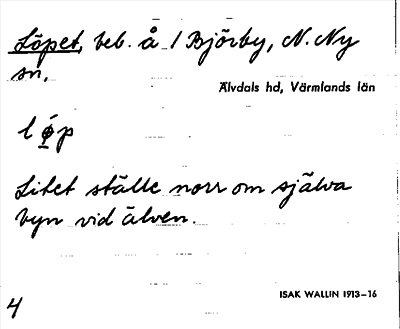 Löpet, beb. å / Björby, N. Ny
sn.
Älvdals hd, Värmlands län
Litet ställe norr om själva
byn vid älven.
ISAK WALLIN 1913–16
4